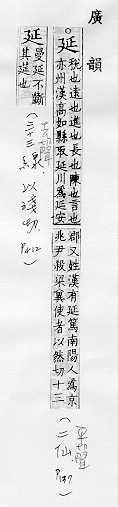 廣韻
延
稅也遠也進也長也陳也言也
亦州漢高奴縣取延川爲延安
郡又姓漢有延篤南陽人爲京
兆尹殺梁冀使者以然切十三
(二仙 P137)
平聲
延
曼延不斷
甚延也
(三十三線 以淺切 P412)
去聲